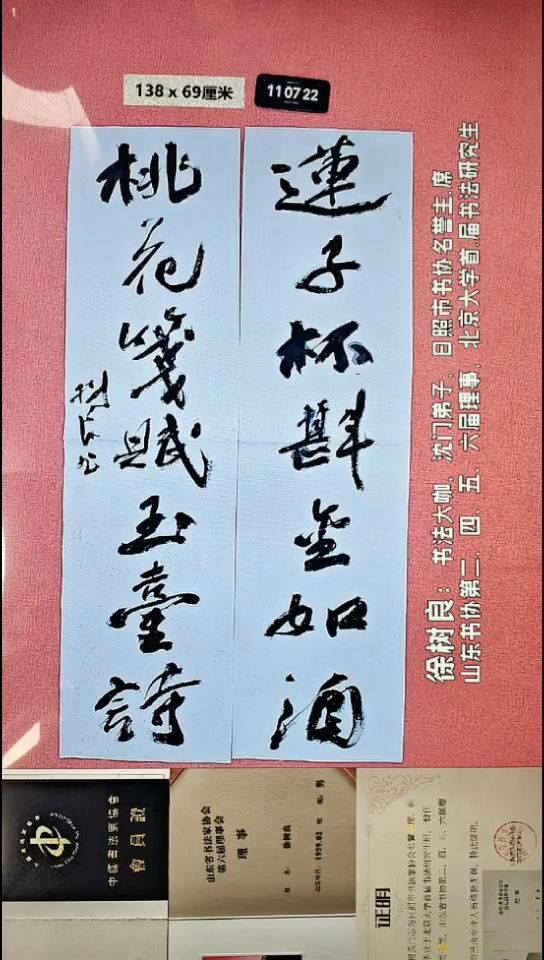 138 x 69厘米
110722
蓮子杯斟金如酒
桃花箋賦玉臺詩
树良书
徐树良：书法大咖、沈门弟子、日照市书协名誉主席
山东书协第二、四、五、六届理事、北京大学首届书法研究生
中國書法家協會
會員證
山东省书法家协会
第六届理事会
理事
徐树良
男
1959.02
证明